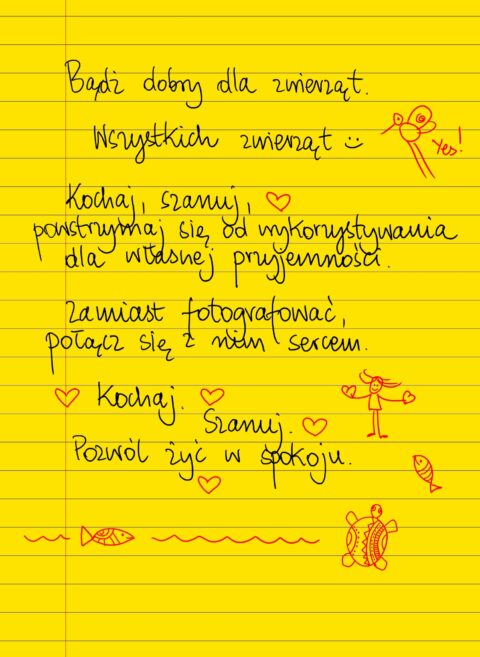 Bądź dobry dla zwierząt.
Wszystkich zwierząt
Yes!
Kochaj, szanuj,
powstrzymaj się od wykorzystywania
dla własnej przyjemności.
Zamiast fotografować,
połącz się z nim sercem.
Kochaj.
Szanuj.
Pozwól żyć w spokoju.